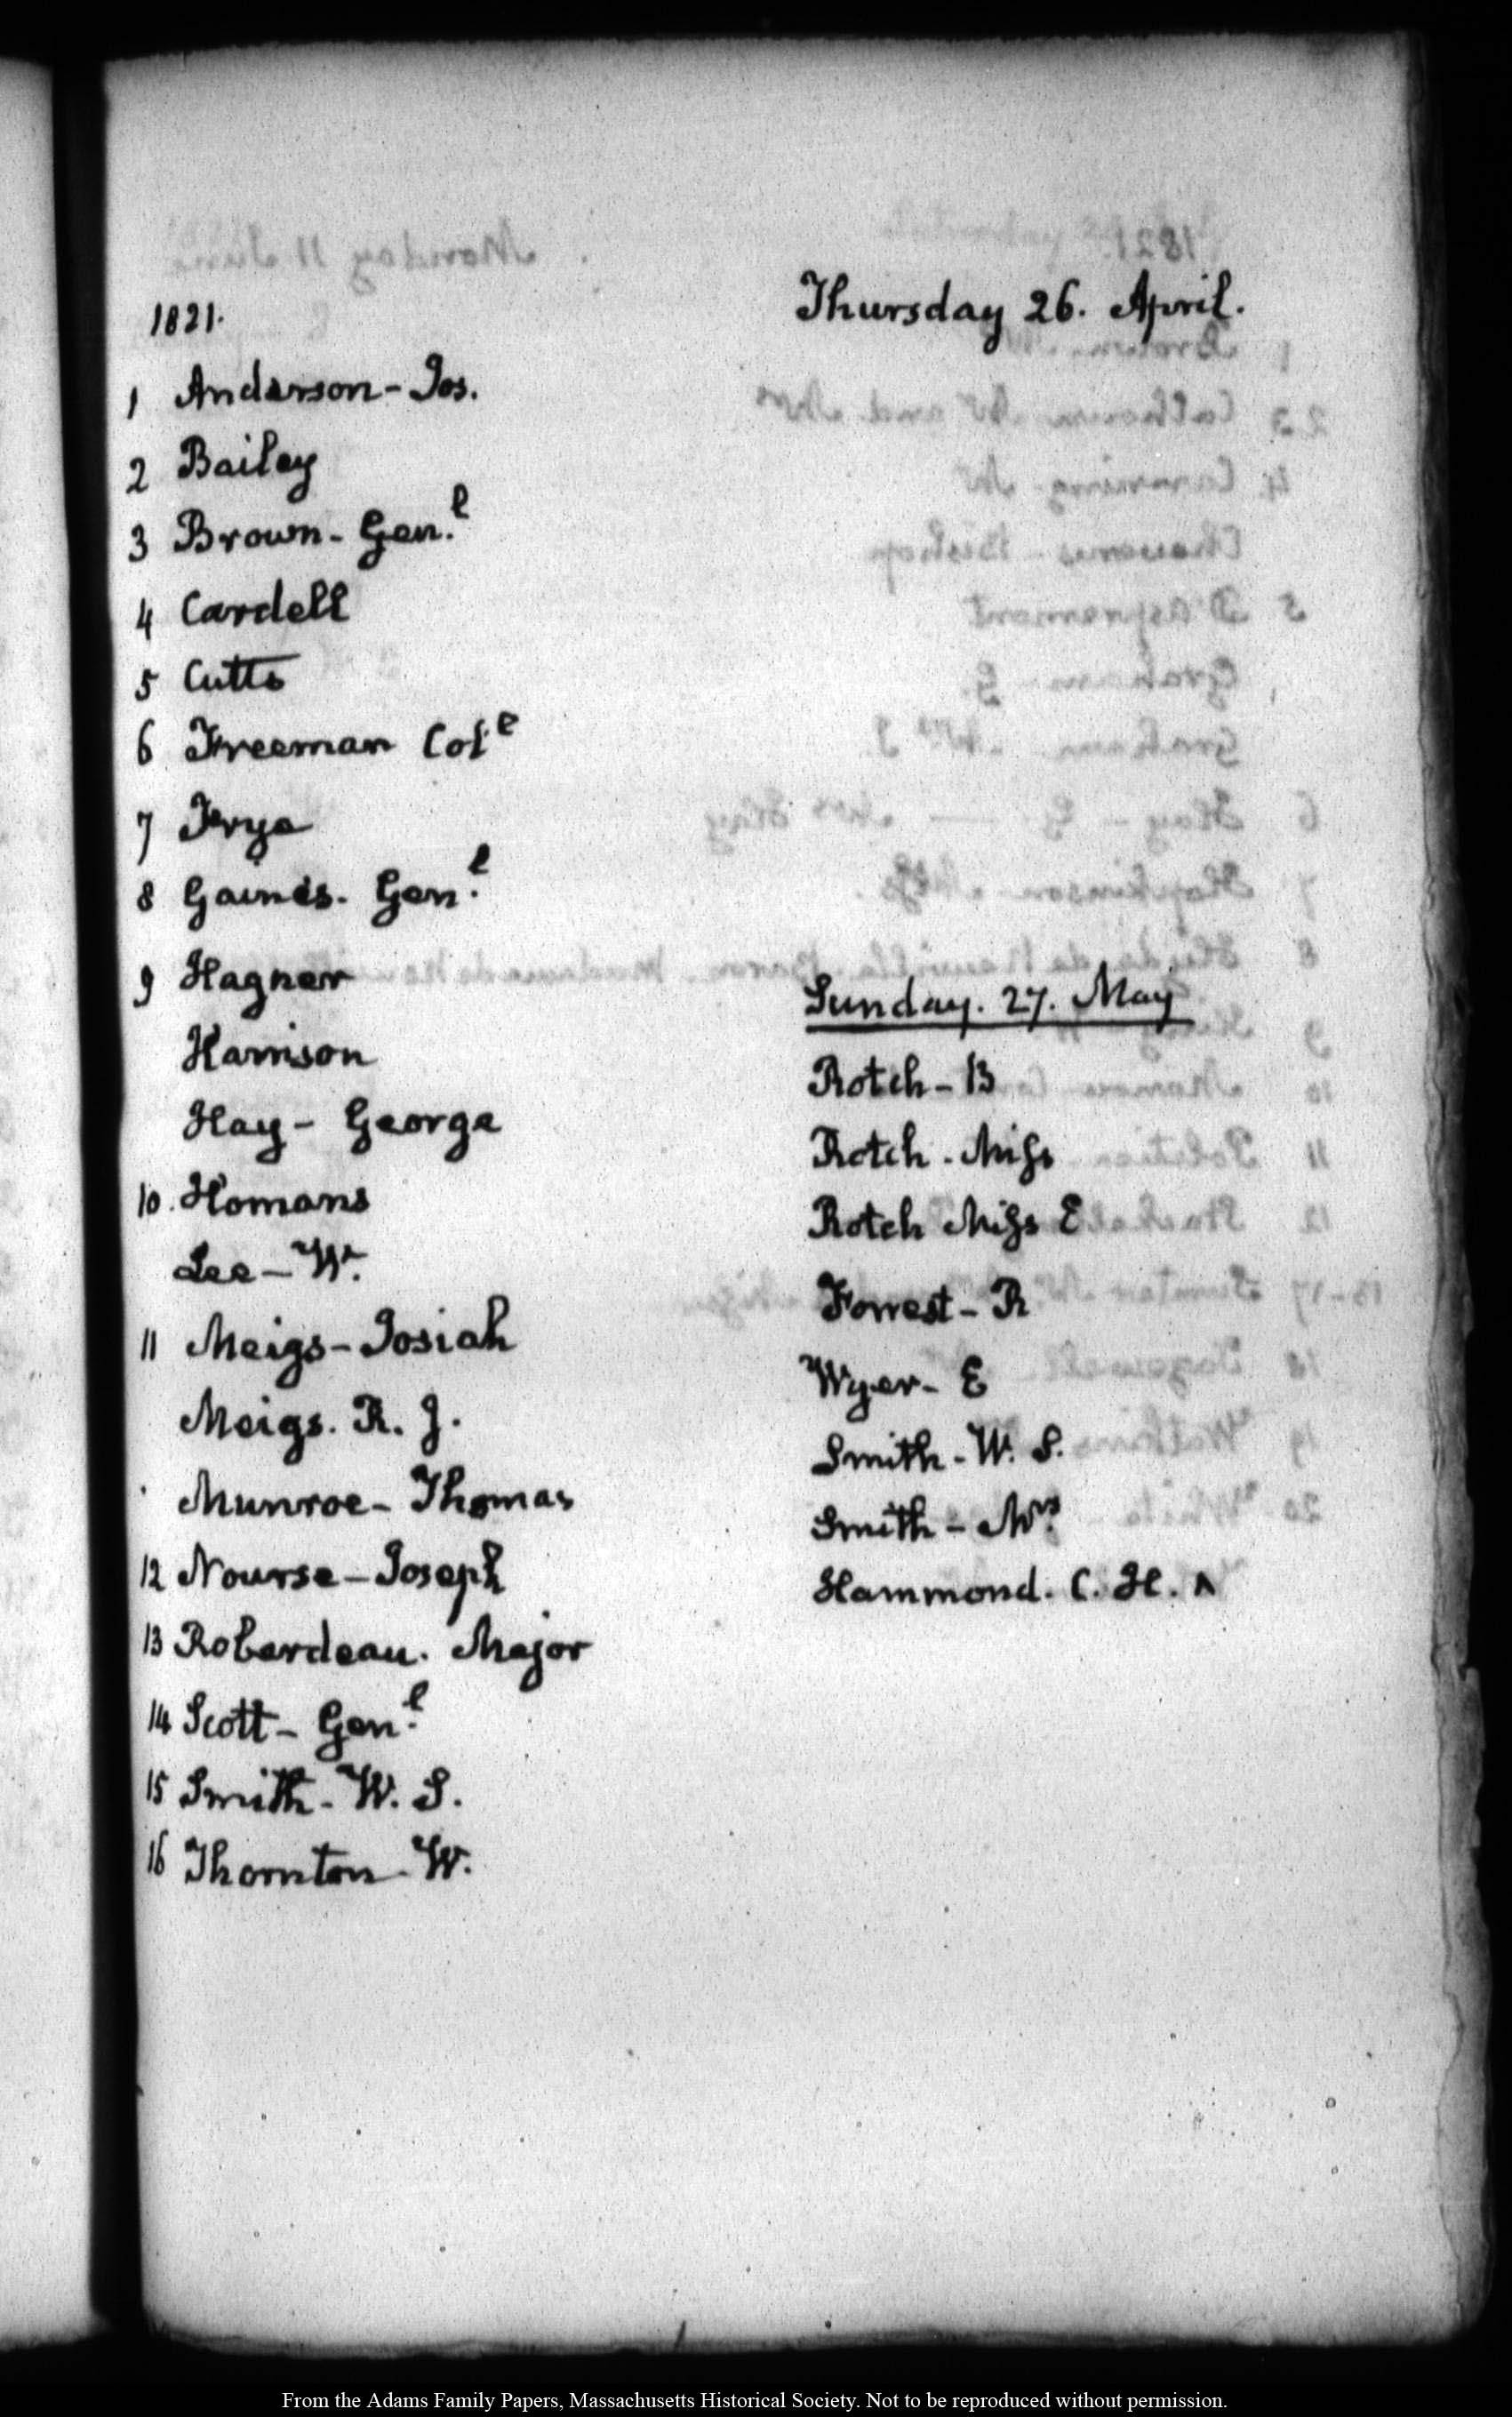 1821.
Thursday 26. April.
1 Anderson - Jos.
2 Bailey
3 Brown - Gen.l
4 Cardell
5 Cutts
6 Freeman Col.l
7 Frye
8 Gaines. Gen.l
9 Hagner
Harrison
Hay - George
10. Homans
Lee - W.
11 Meigs - Josiah
Meigs. R. J.
Munroe - Thomas
12 Nourse - Joseph
13 Roberdeau. Major
14 Scott - Gen.l
15 Smith - W. S.
16 Thornton - W.
Sunday. 27. May
Rotch - B
Rotch - Miss
Rotch Miss E
Forrest - R
Wyer - E
Smith - W. S.
Smith - Mrs
Hammond. C. H.
From the Adams Family Papers, Massachusetts Historical Society. Not to be reproduced without permission.